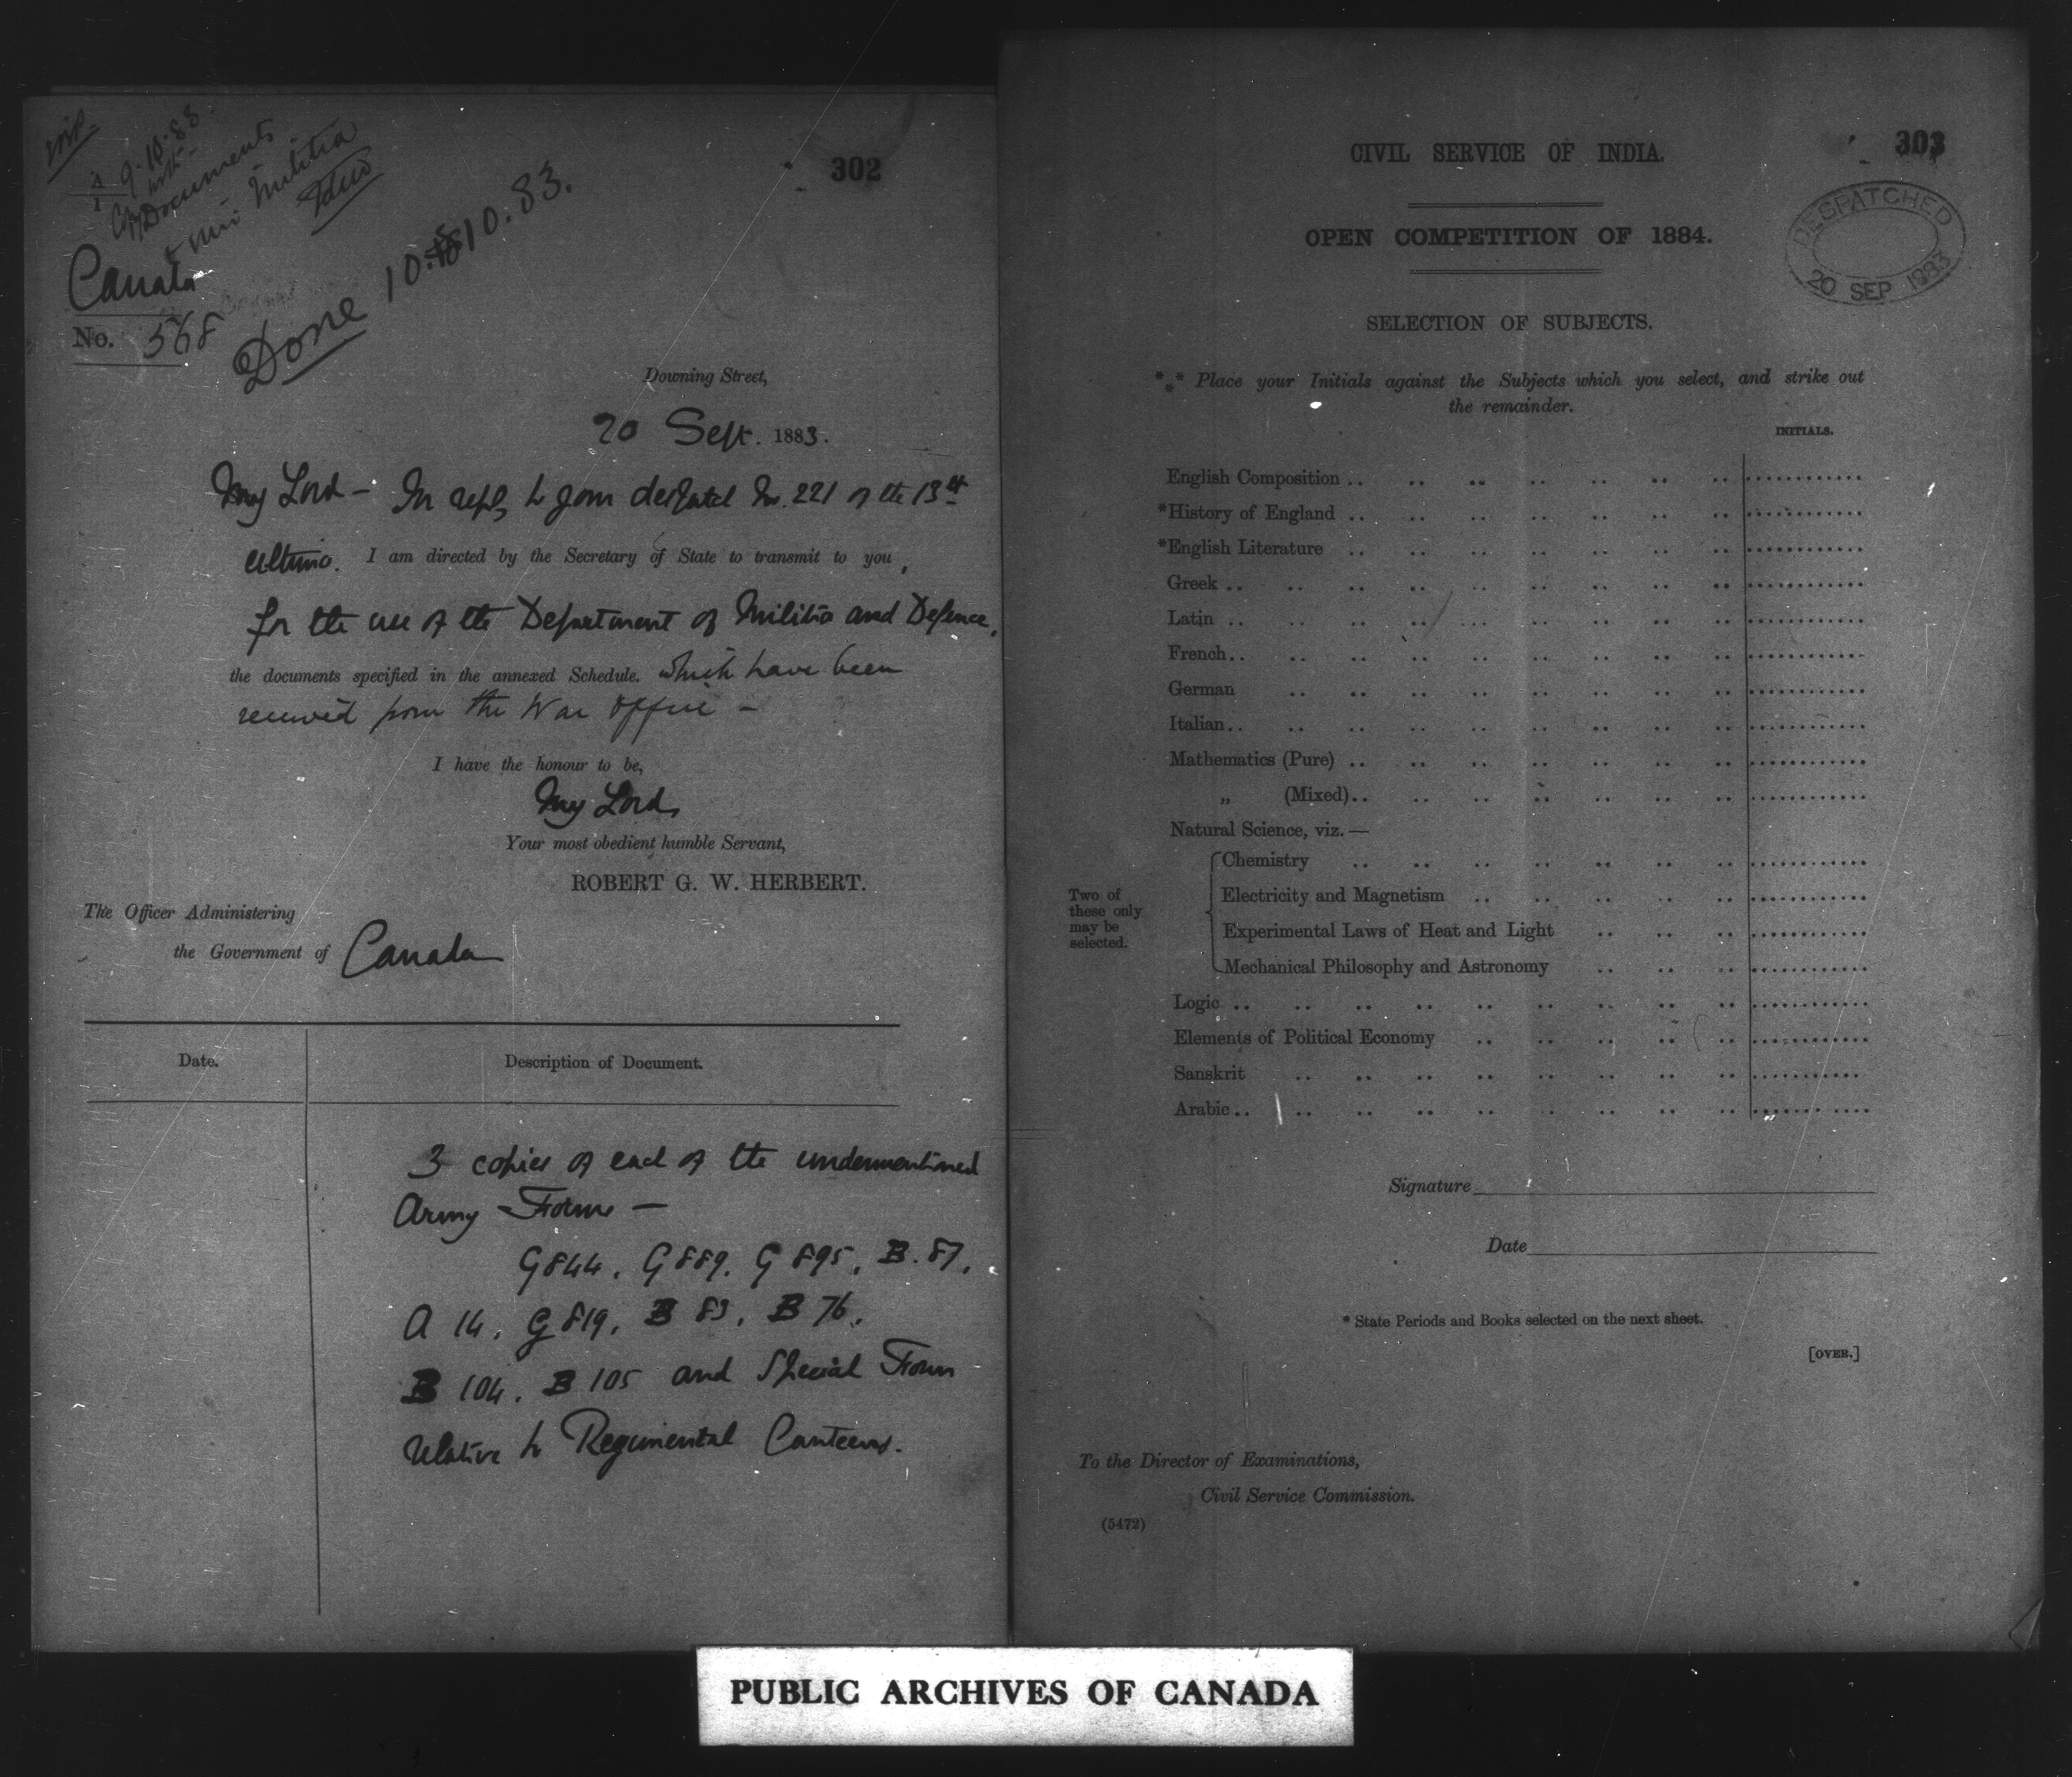 302
9.10.83.
Documents
Militia
Canada
No. 568
Done 10.10.83.
Downing Street,
20 Sept. 1883.
My Lord – In reply to your despatch No. 221 of the 13th
ultimo. I am directed by the Secretary of State to transmit to you,
for the use of the Department of Militia and Defence,
the documents specified in the annexed Schedule. which have been
received from the War Office –
I have the honour to be,
My Lord,
Your most obedient humble Servant,
ROBERT G. W. HERBERT.
The Officer Administering
the Government of Canada
Date. Description of Document.
3 copies of each of the undermentioned
Army Forms –
G 844. G 889. G 895. B. 87.
A 14. G 819. B 83. B 76.
B 104. B 105 and Special Form
relative to Regimental Canteens.
303
CIVIL SERVICE OF INDIA.
OPEN COMPETITION OF 1884.
DESPATCHED
20 SEP 1883
SELECTION OF SUBJECTS.
*** Place your Initials against the Subjects which you select, and strike out
the remainder.
INITIALS.
English Composition
*History of England
*English Literature
Greek
Latin
French
German
Italian
Mathematics (Pure)
„ (Mixed)
Natural Science, viz.—
Two of these only may be selected.
Chemistry
Electricity and Magnetism
Experimental Laws of Heat and Light
Mechanical Philosophy and Astronomy
Logic
Elements of Political Economy
Sanskrit
Arabic
Signature
Date
* State Periods and Books selected on the next sheet.
[OVER.]
To the Director of Examinations,
Civil Service Commission.
(5472)
PUBLIC ARCHIVES OF CANADA